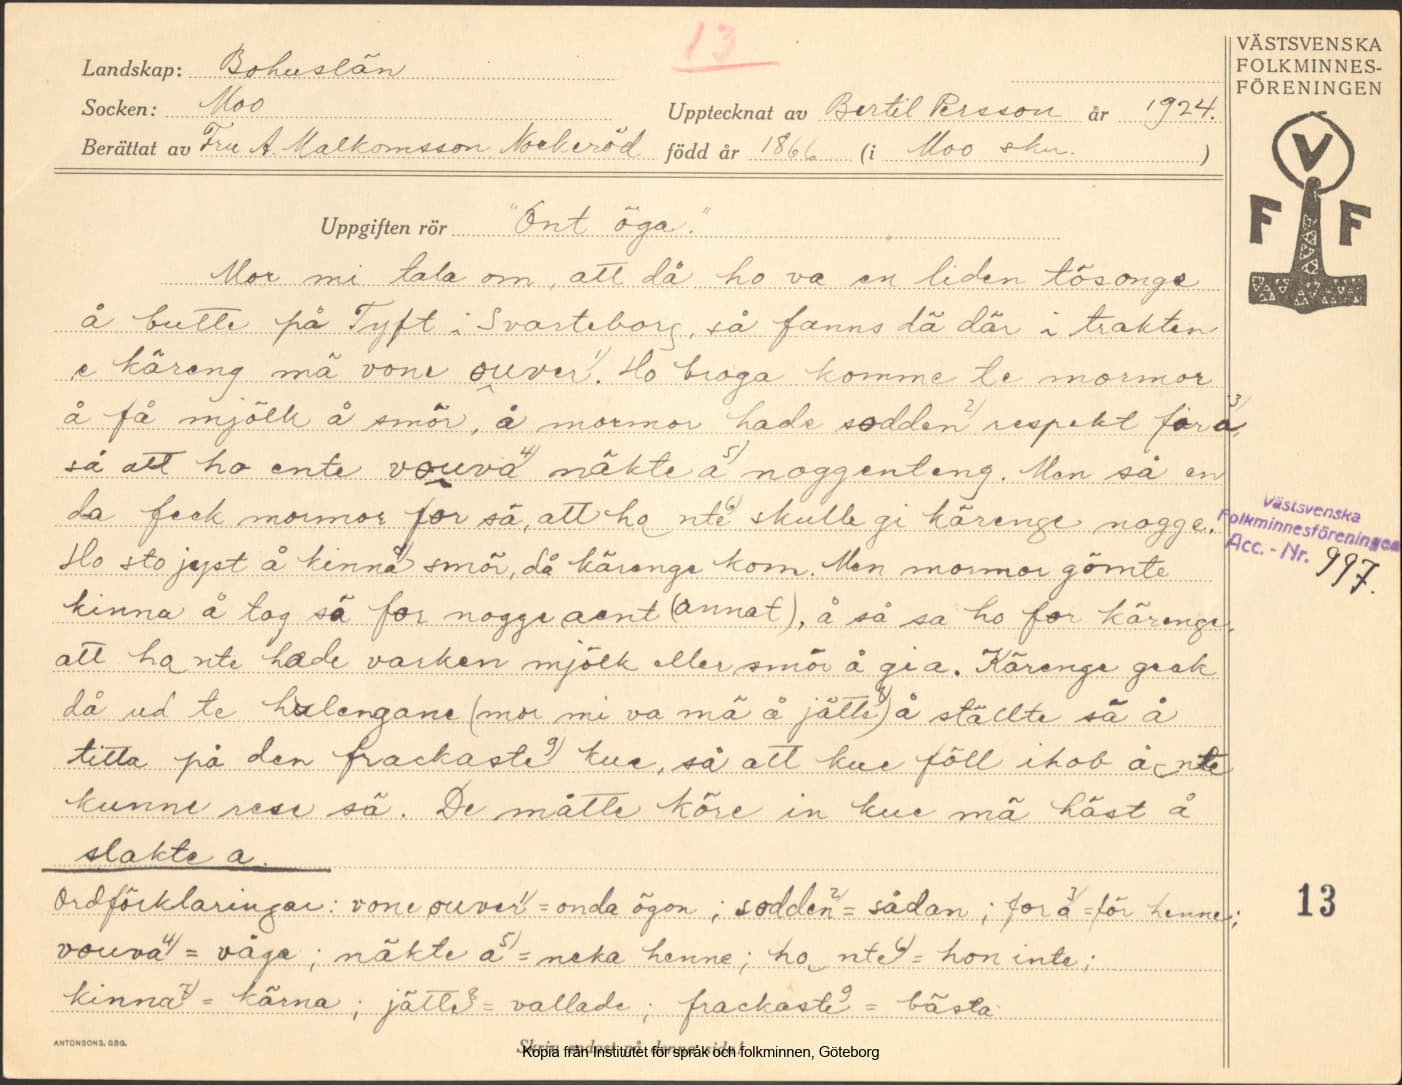 13
Landskap: Bohuslän
Socken: Moo
Upptecknat av Bertil Persson år 1924.
Berättat av Fru A. Malkomsson Nockeröd född år 1866 (i Moo skn. )
VÄSTSVENSKA
FOLKMINNES-
FÖRENINGEN
V
F F
Uppgiften rör "Ont öga."
Mor mi tala om, att då ho va en liden tösonge
å butte på Tyft i Svarteborg, så fanns dä där i trakten
e käreng mä vone ouver 1). Ho broga komme te mormor
å få mjölk å smör, å mormor hade sodden 2) respekt for a 3),
så att ho ente vouva 4) näkte a 5) noggenteng. Men så en
da feck mormor for sä, att ho nte 6) skulle gi kärenge nogge.
Ho sto jyst å kinna 7) smör, då kärenge kom. Men mormor gömte
kinna å tog sä for nogge aent (annat), å så sa ho for kärenge,
att ho nte hade varken mjölk eller smör å gi a. Kärenge geck
då ud te hulengane (mor mi va mä å jätte 8)) å ställte sä å
titta på den frackaste 9) kue, så att kue föll ihob å nte
kunne rese sä. De måtte köre in kue mä häst å
slakte a.
Ordförklaringar: vone ouver 1) = onda ögon; sodden 2) = sådan; for a 3) = för henne;
vouva 4) = våga; näkte a 5) = neka henne; ho nte 6) = hon inte;
kinna 7) = kärna; jätte 8 = vallade; frackaste 9 = bästa.
Västsvenska
Folkminnesföreningen
Acc. - Nr. 997.
13
ANTONSONS, GBG.
Skriv endast på denna sida!
Kopia från Institutet för språk och folkminnen, Göteborg